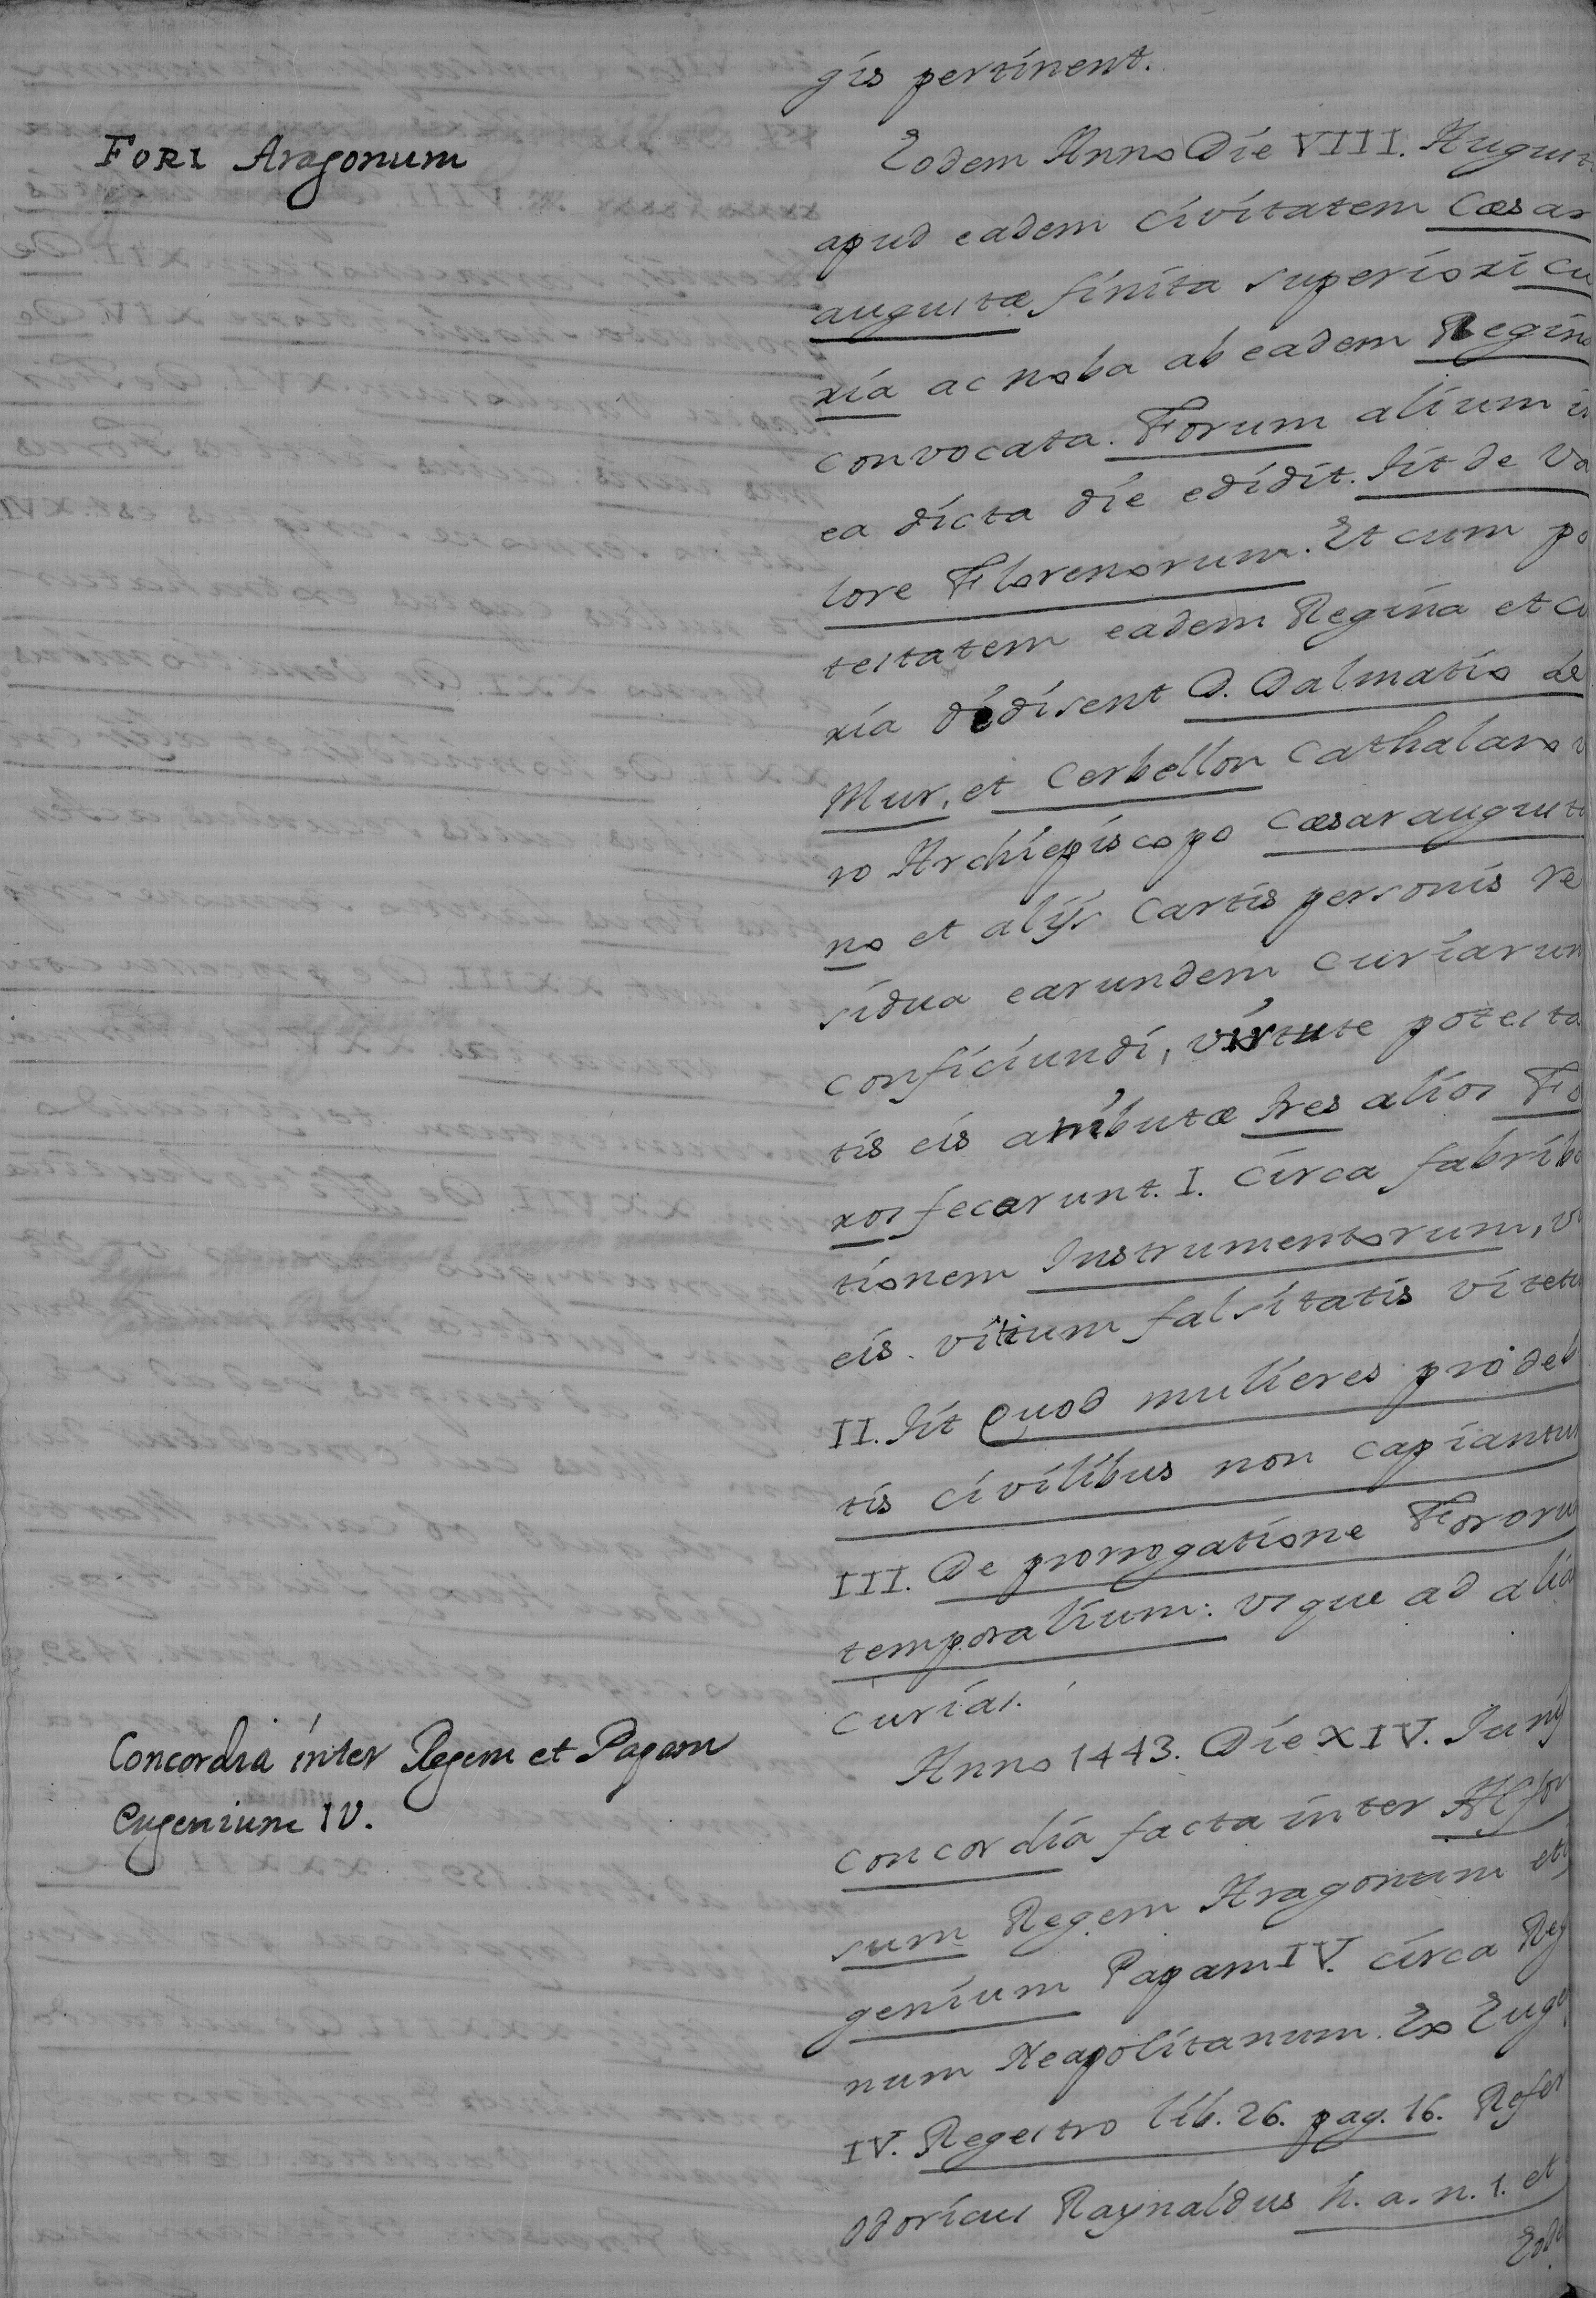 gis pertinent.
Fori Aragonum
Eodem Anno Die VIII. August
apud eadem civitatem Cæsar
augustæ finita superiori cu
ria ac noba ab eadem Regina
convocata. Forum alium in
ea dicta die edidit. Sit de va
lore Florenorum. Et cum po
testatem eadem Regina et cu
ria dedisent D. Dalmatio de
Mur, et Cerbellon Cathalano v
ro Archiepiscopo Cæsaraugusta
no et alijs Cartis personis re
sidua earundem curiarum
conficiundi, virtute potesta
tis eis atributæ tres alios Fo
ros fecerunt. I. Circa fabrica
tionem Instrumentorum, v
eis vitium falsitatis vitetu
II. Sit Quod mulieres pro deb
tis civilibus non capiantur
III. De prorrogatione Fororu
temporalium: usque ad alia
curias.
Concordia inter Regem et Papam
Eugenium IV.
Anno 1443. Die XIV. Junij
concordia facta inter Alfon
sum Regem Aragonum et
genium Papam IV. circa Reg
num Neapolitanum. Ex Euge
IV. Regestro lib. 26. pag. 16. Refer
Odoricus Raynaldus h. a. n. 1. et
Eode